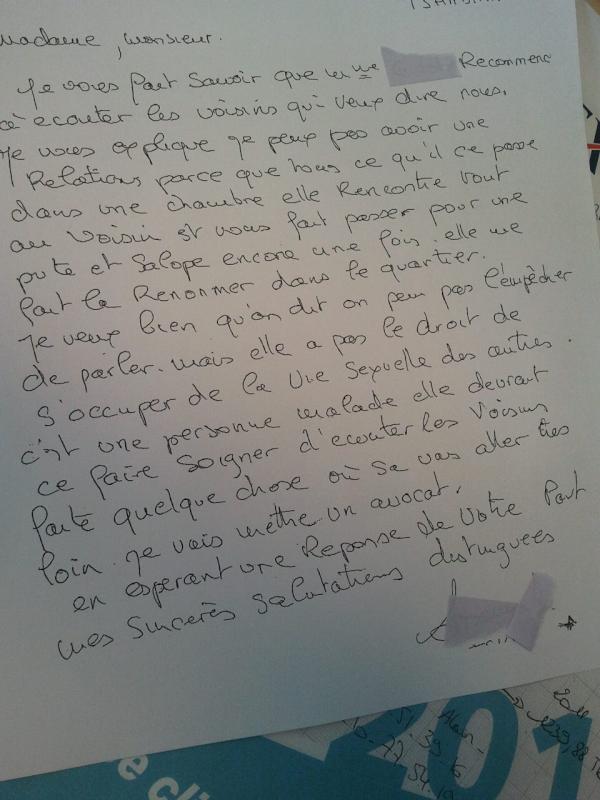 Madame, Monsieur.
Je vous fait savoir que Mme Recommence
à ecouter les voisins qui veux dire nous.
Je vous explique je peux pas avoir une
Relations parce que nous ce qu'il ce passe
dans une chambre elle Rencontre tout
au voisin et vous fait passer pour une
pute et Salope encore une fois elle me
fait la Renommer dans le quartier.
Je veux bien qu'on dit on peux pas l'empêcher
de parler. mais elle a pas le droit de
s'occuper de la vie sexuelle des autres.
c'est une personne malade elle devrait
ce faire soigner d'ecouter les voisins
faite quelque chose où sa vas aller très
loin je vais mettre un avocat.
en esperant une Reponse de votre Part
mes Sincères Salutations distinguées
Alain-
51.39.16
77.54.19
1239,88
201
e cli